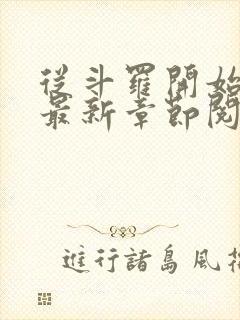 從斗羅開始
最新章節閱
進行諸島風花